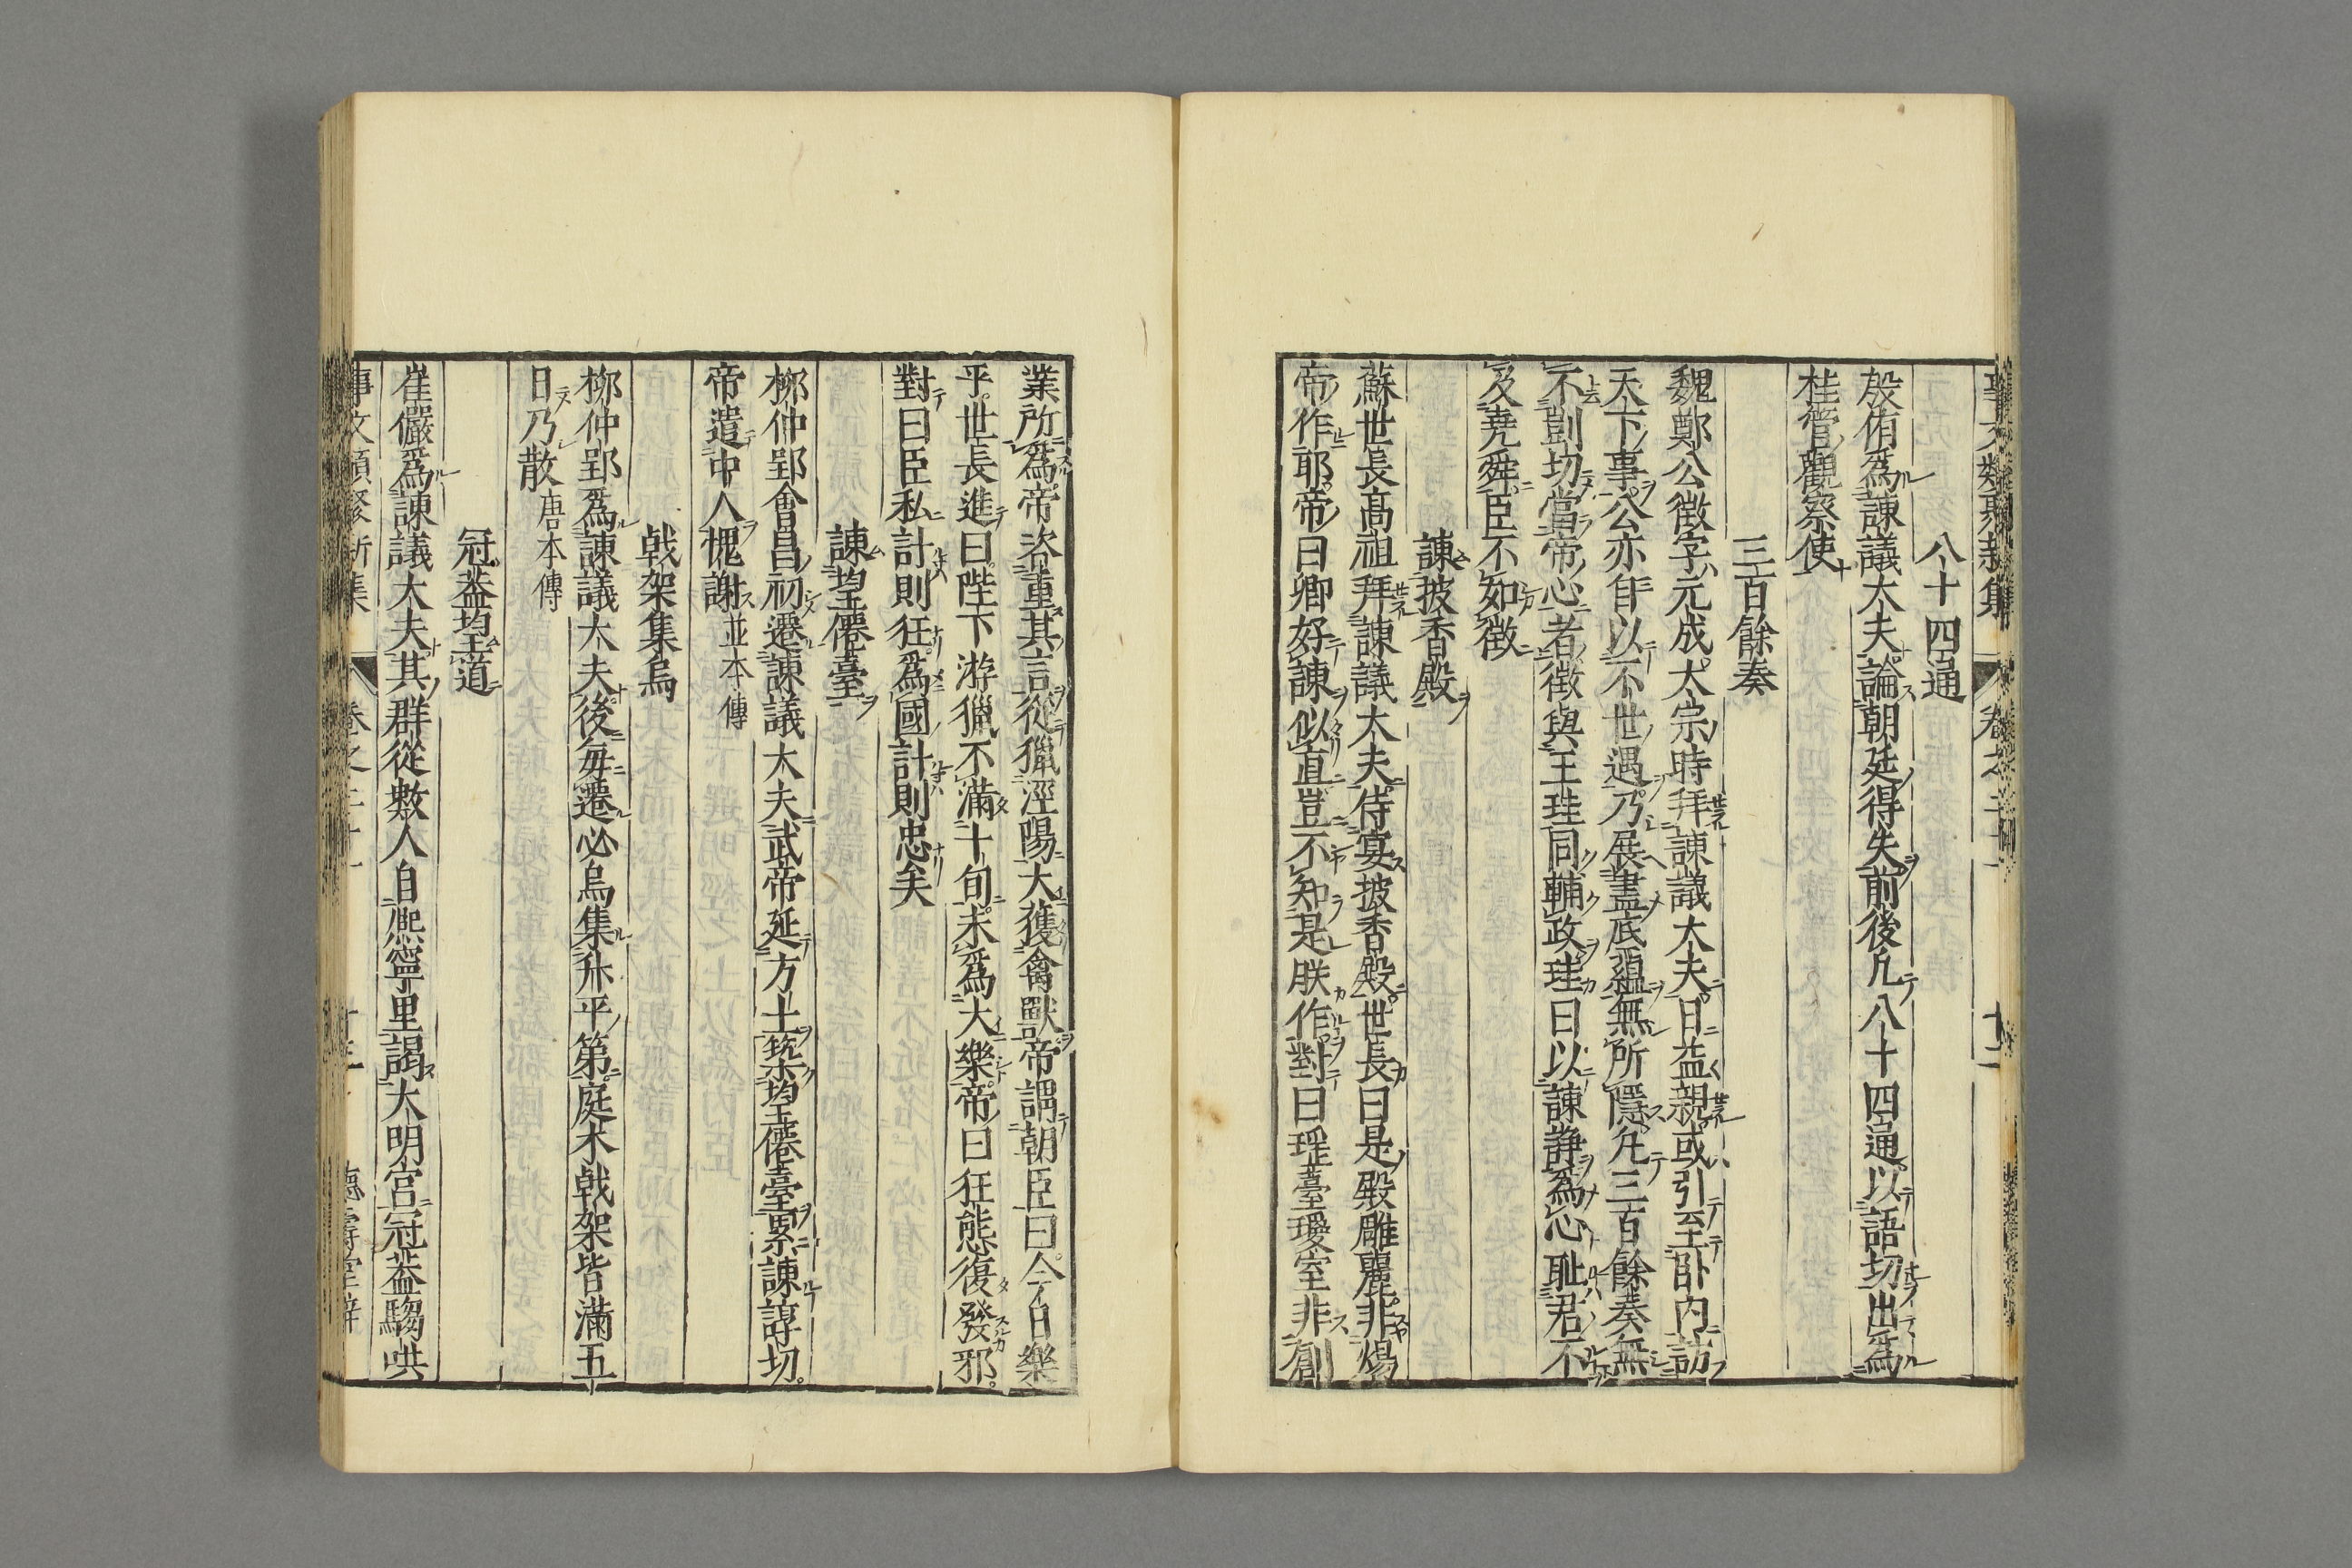 八十四通
殷侑爲諫議大夫論朝廷得失前後凢八十四通以語切出爲
桂管觀察使
三百餘奏
魏鄭公徵字元成太宗時拜諫議大夫日益親或引至卧內訪
天下事公亦自以不世遇乃展盡底蘊無所隱凢三百餘奏無
不剴切當帝心者徵與王珪同輔政珪曰以諫諍爲心耻君不
及堯舜臣不如徵
諫披香殿
蘇世長高祖拜諫議大夫侍宴披香殿世長曰是殿雕麗非煬
帝作耶帝曰卿好諫似直豈不知是朕作對曰瑶臺瓊室非創
業所爲帝咨重其言從獵涇陽大獲禽獸帝謂朝臣曰今日樂
乎世長進曰陛下游獵不滿十旬未爲大樂帝曰狂態復發邪
對曰臣私計則狂爲國計則忠矣
諫築僊臺
柳仲郢會昌初遷諫議大夫武帝延方士築僊臺累諫諄切
帝遣中人愧謝並本傳
戟架集烏
柳仲郢爲諫議大夫後每遷必烏集升平第庭木戟架皆滿五
日乃散唐本傳
冠葢塋道
崔儼爲諫議大夫其群從數人自熈寧里謁大明宮冠葢騶哄